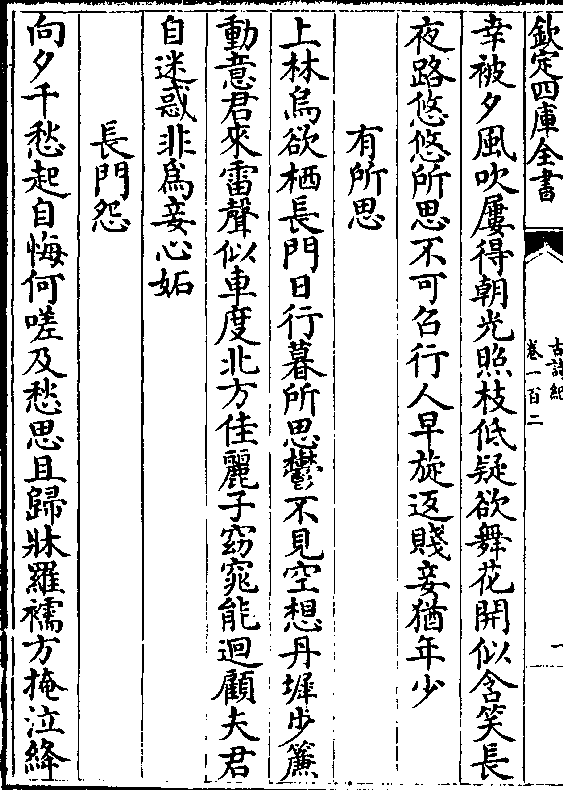 欽定四庫全書
古詩紀
卷一百二
幸被夕風吹屢得朝光照枝低疑欲舞花開似含笑長
夜路悠悠所思不可召行人早旋返賤妾猶年少
有所思
上林烏欲栖長門日行暮所思鬱不見空想丹墀步簾
動意君來雷聲似車度北方佳麗子窈窕能迴顧夫君
自迷惑非為妾心妬
長門怨
向夕千愁起自悔何嗟及愁思且歸牀羅襦方掩泣絳